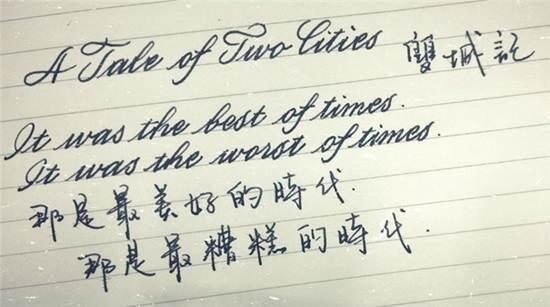 A Tale of Two Cities 雙城記
It was the best of times.
It was the worst of times.
那是最美好的時代.
那是最糟糕的時代.